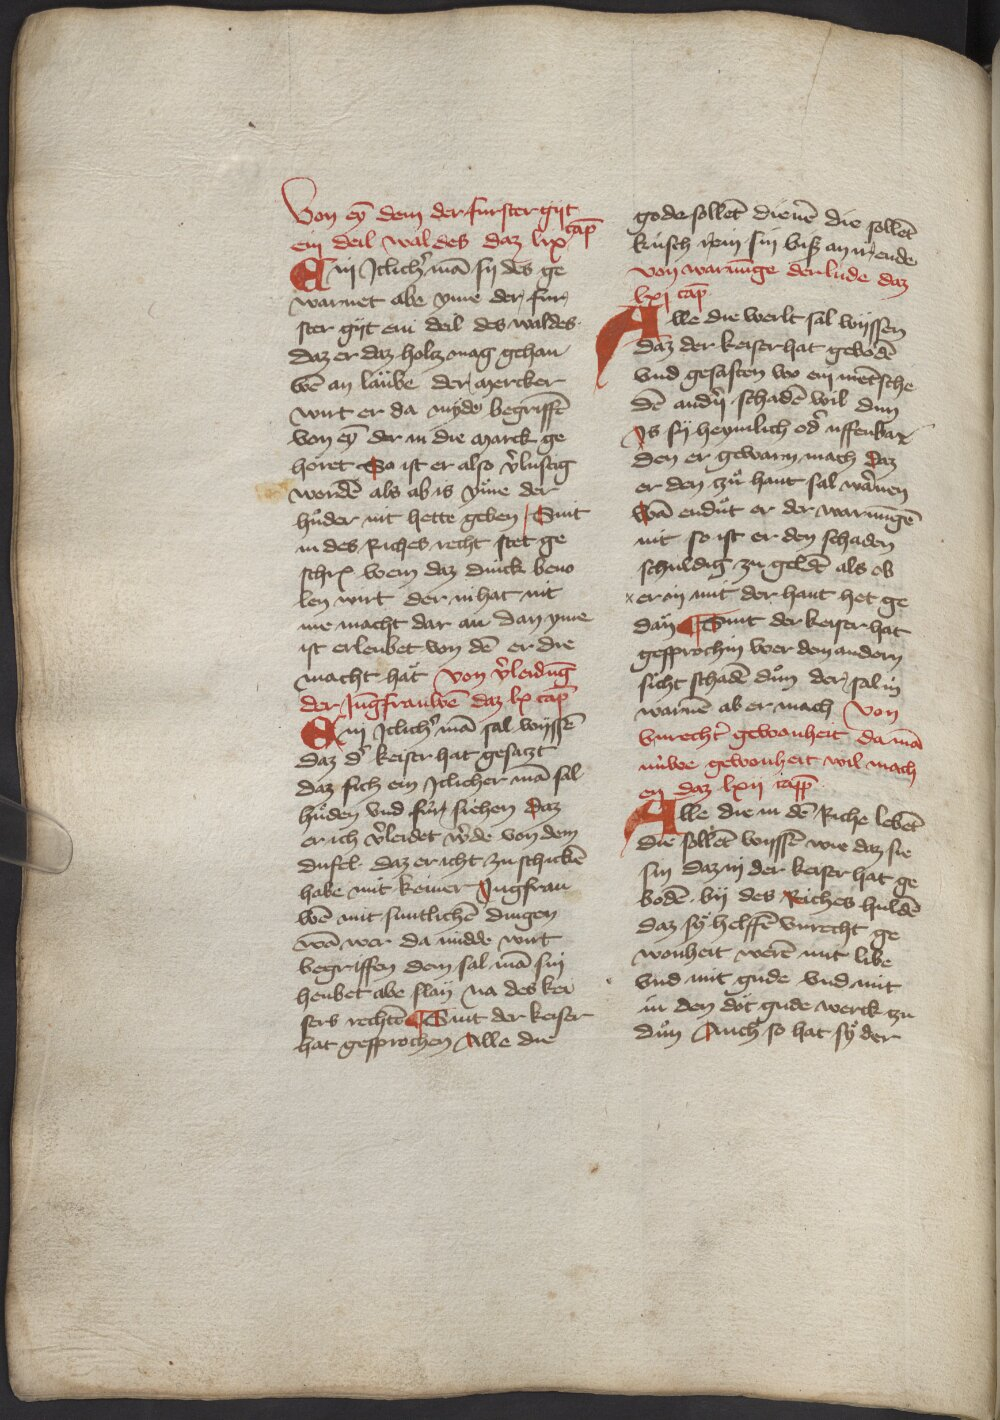 Von eȳ dem der furster gijt
ein deil waldes daz lix cap̄
Ein Jclich̉ mā sij des ge
warnet abe yme der fur
ster gijt ein deil des waldes
daz er daz holtz mag gehau
wē an läube der mercker
wirt er da myde begriffē
von eȳ der in die marck ge
höret So ist er also v̉lustig
wordē als ab is yme der
hůder nit hette geben Sint
in des Riches recht stet ge
schr̄ wem daz dinck bevo
len wirt der in hat nit
me macht dar an dan yme
ist erleubet von dē er die
macht hat von v̉leidūg
der Jūgfrauwē daz lx cap̄
Ein Jclich̉ mā sal wyssē
daz d̉ keiser hat gesatzt
daz sich ein Jclicher mā sal
hůden vnd fur siehen daz
er ich v̉leidet w̉de von dem
dufel daz er icht zu schickē
habe mit keiner Jūgfrau
wē mit suntlichē dingen
wā wer da midde wirt
begriffen dem sal mā sin
heubet abe slan na des kei
sers rechte Sint der keiser
hat gesprochen Alle die
gode sollēt dienē die sollēt
kůsch rein sin biß an ir ende
von warnūge der lude daz
lxi cap̄
Alle die werlt sal wyssen
daz der keiser hat gebodē
vnd gesasten wo ein mētsche
dē and̉n schadē wil dun
Js sij heymlich od̉ uffenbar
den er gewarn mach daz
er den zů hant sal warnen
wā endůt er der warnūgē
nit so ist er den schaden
schuldig zu geldē als ob
er in mit der hant het ge
dan Sint der keiser hat
gesprochin wer den andern
sicht schadē důn der sal in
warnē ab er mach Von
vnrecht̉ gewonheit da mā
nůwe gewonheit wil mach
en daz lxii capp̄
Alle die in dē Riche lebēt
die sollēt wyssē wie daz sie
sin daz in der keiser hat ge
bodē bij des Riches huldē
daz sij helffē vnrecht ge
wonheit werē mit libe
vnd mit gude vnd mit
in den dot gude werck zu
důn Auch so hat sij der